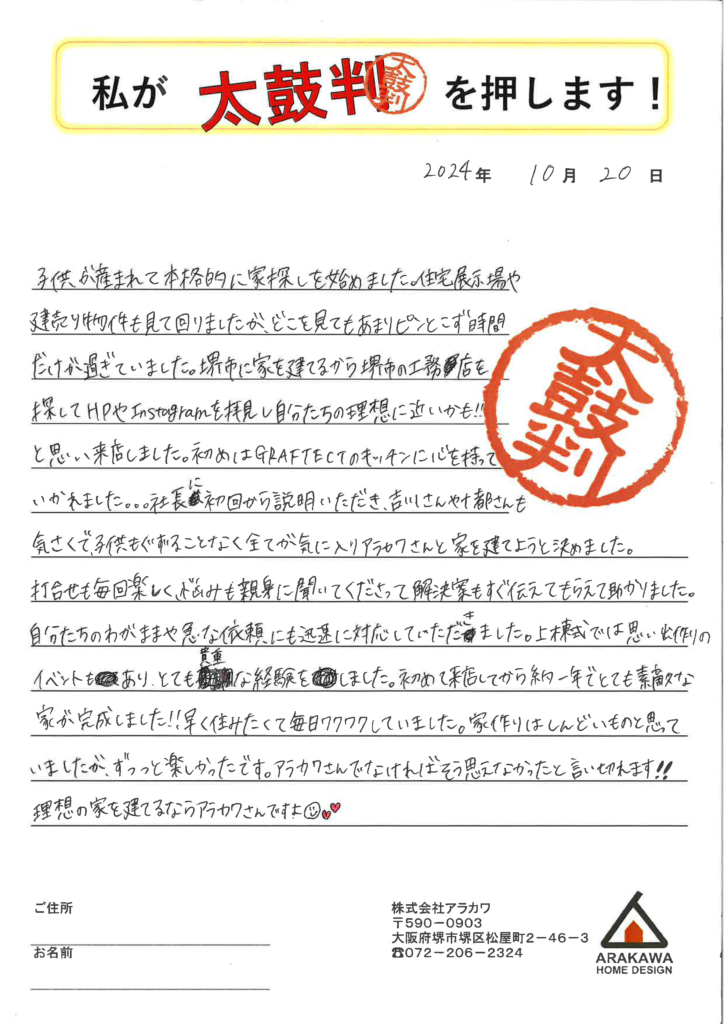 私が 太鼓判 太鼓判 を押します！
2024年 10月 20日
子供が産まれて本格的に家探しを始めました。住宅展示場や
建売り物件も見て回りましたが、どこを見てもあまりピンとこず時間
だけが過ぎていました。堺市に家を建てるから堺市の工務店を
探してHPやInstagramを拝見し自分たちの理想に近いかも!!
と思い来店しました。初めはGRAFTECTのキッチンに心を持って
いかれました...社長に初回から説明いただき、吉川さんや十都さんも
気さくで、子供もぐずることなく全てが気に入りアラカワさんと家を建てようと決めました。
打合せも毎回楽しく、悩みも親身に聞いてくださって解決案もすぐ伝えてもらえて助かりました。
自分たちのわがままや急な依頼にも迅速に対応していただきました。上棟式では思い出作りの
イベントもあり、とても貴重な経験をしました。初めて来店してから約一年でとても素敵な
家が完成しました!!早く住みたくて毎日ワクワクしていました。家作りはしんどいものと思って
いましたが、ずっっと楽しかったです。アラカワさんでなければそう思えなかったと言い切れます!!
理想の家を建てるならアラカワさんですよ
太鼓判
ご住所
お名前
株式会社アラカワ
〒590-0903
大阪府堺市堺区松屋町2-46-3
☎072-206-2324
ARAKAWA
HOME DESIGN